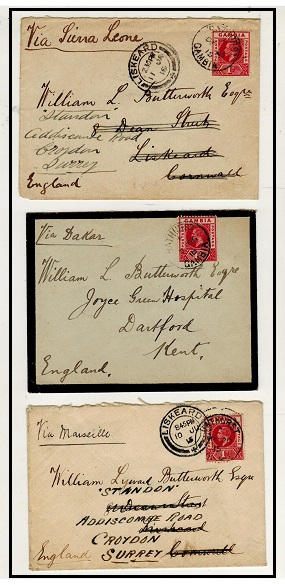 Via Sierra Leone
LISKEARD
GAMBIA
William L. Butterworth Esqre
"Standon"
8 Dean Street
Addiscombe Road
Liskeard
Croydon
Cornwall
Surrey
England
GAMBIA
Via Dakar
William L. Butterworth Esqre
Joyce Green Hospital
Dartford
Kent.
England.
LISKEARD
8 45 PM
10 JU
Via Marseille
William Lyward Butterworth Esqre
"STANDON"
8 Dean Street
ADDISCOMBE ROAD
Liskeard
CROYDON
England
SURREY
Cornwall